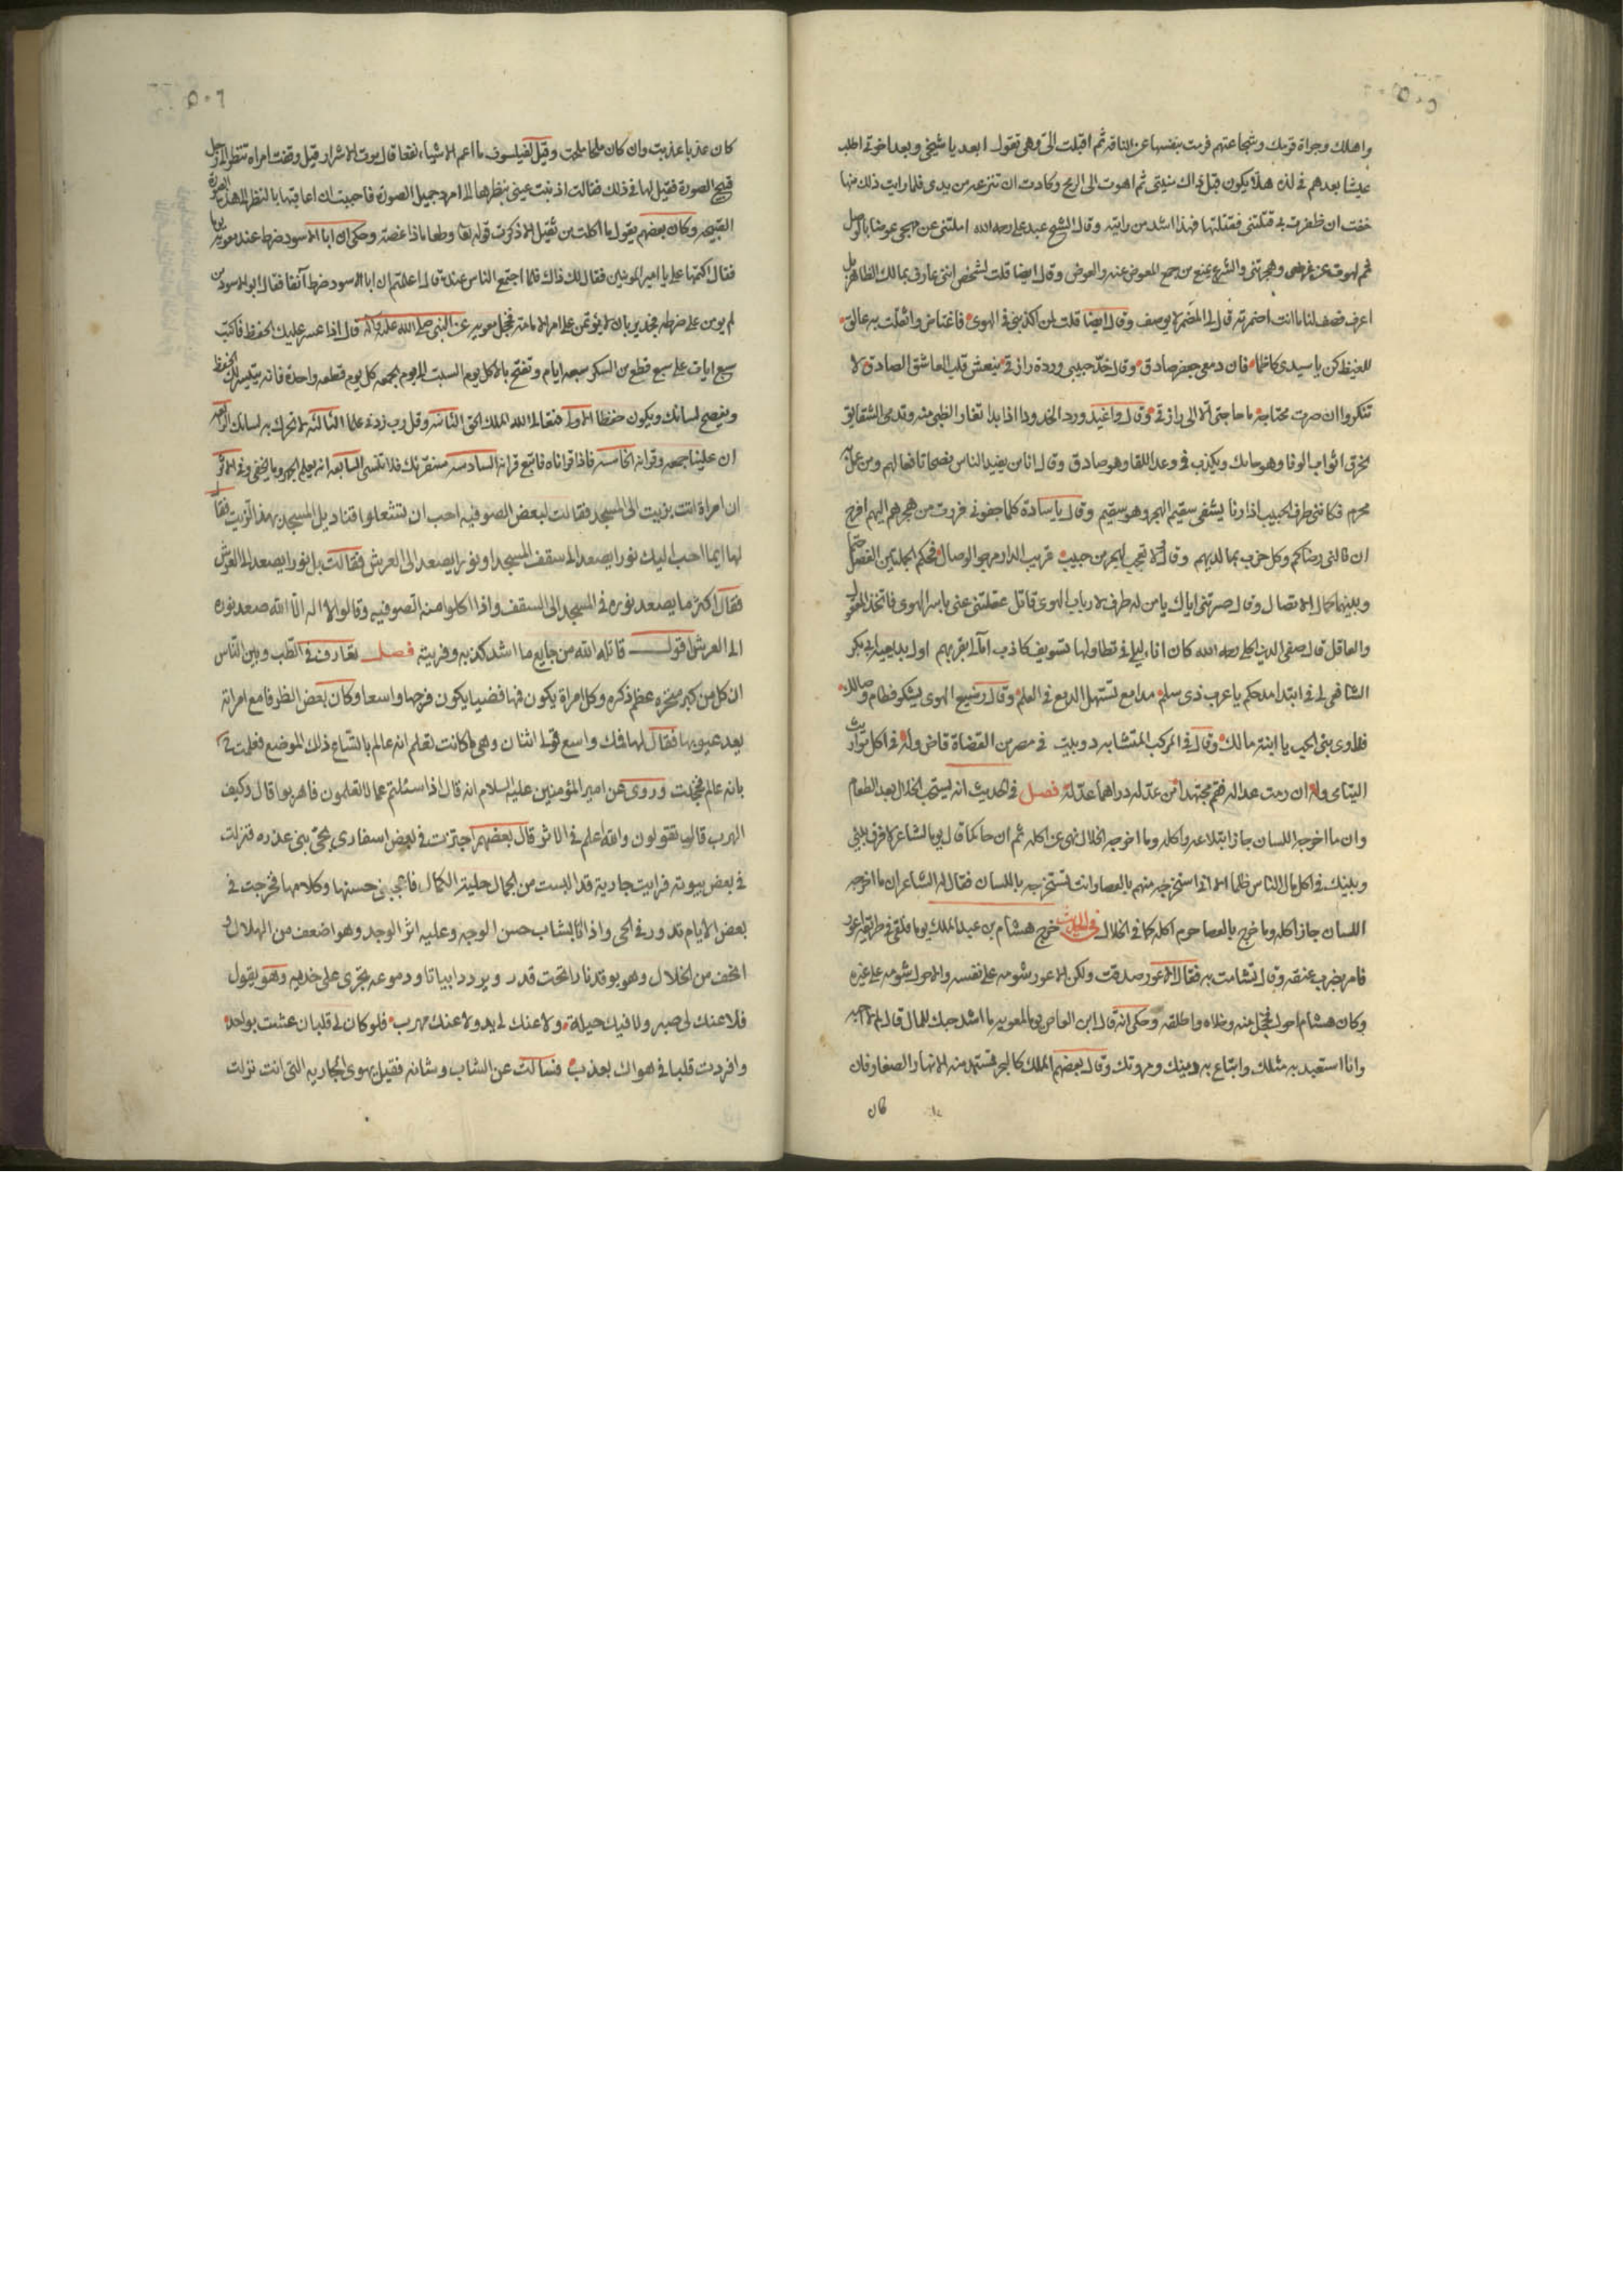 ٥٠٥
واهلك وجراة قومك وشجاعتهم فرمت بنفسها عن الناقة ثم اقبلت الى وهى تقول ابعد ياشيخى وبعد اخوتى اطلب
عيشا بعدهم فى لذة هلا يكون قبل ذاك منيتى ثم اهوت الى الرمح وكادت ان تنزعه من يدى فلما رايت ذلك منها
خفت ان ظفرت بى قتلتنى فقتلتها فهذا اشد من رايته وقال الشيخ عبد على رحمه الله املتنى عن مهجى عوضا بالوصل
وهجرتنى والشرع يمنع من جمع المعوض عنه والعوض وقال ايضا قلت لشخص اننى عارف بمالك الظاهر بل
اعرف فصف لنا ما انت اضمرته قال لى المضمر لا يوصف وقال ايضا قلت لمن اكذبنى فى الهوى فاغتاض واثقلت به عاتق
للغيظ كن ياسيدى كاظما فان دمعى جعفر صادق وقال خد حبيبى وردة رازقى منعش قلب العاشق الصادق لا
تنكروا ان صرت محتاجه ما حاجتى الا الى رازقى وقال واغيد ورد الخدود اذا بدا تغار الظبى منه وتدمى الشقايق
يخرق اثواب الوفا وهو حايك ويكذب فى وعد اللقا وهو صادق وقال انا من يفيد الناس نصحا نافعا لهم ومن على
محرم فكانى طرف الحبيب اذا رنا يشفى سقيم الهجر وهو سقيم وقال ياسادة كلما جفونى فررت من هجرهم اليهم افرح
ان فاتنى رضاكم وكل حزب بما لديهم وقال لا تعجب لهجر من حبيب قريب الدار مرجو الوصال فحكم الجملتين الفصل حتما
وبينهما كمال الاتصال وقال صرتنى اياك يا من له طرف لارباب الهوى قاتل عقلتنى عنى باسر الهوى فاتخذ المعقول
والعاقل قال صفى الدين الحلى رحمه الله كان اناء ليلى فى تطاولها تسويف كاذب امالى بقربهم اول بديعية ابى بكر
الشافعى لى فى ابتدا مدحكم ياعرب ذى سلم مدامع تستهل الدمع فى العلم وقال رضيع الهوى يشكو فطام وصالك
فداوى بنى الحب يا ابنة مالك وقال فى المركب المتشابه دوبيت فى مصر من القضاة قاض وله فى اكل مواريث
اليتامى وله ان رمت عدالة فقم مجتهدا من عد له دراهما عدله فصل فى الحديث انه يستحب الخلال بعد الطعام
وان ما اخرجه اللسان جاز ابتلاعه واكله وما اخرجه الخلال نهى عن اكله ثم ان حاكما قال يوما لشاعر لا فرق بينى
وبينك فى اكل مال الناس ظلما الا انى استخرجه منهم بالعصا وانت تستخرجه باللسان فقال له الشاعر ان ما اخرجه
اللسان جاز اكله وما خرج بالعصا حرم اكله كما فى الخلال فى الحديث خرج هشام بن عبد الملك يوما فلقى فى طريقه اعور
فامر بضرب عنقه وقال تشامت به فقال الاعور صدقت ولكن الاعور شومه على نفسه والاحول شومه على غيره
وكان هشام احول فخجل منه وخلاه واطلقه وحكى انه قال ابن العاص يوما لمعوية ما اشد حبك للمال قال لم لا احبه
وانا استعبد به مثلك وابتاع به دينك ومروتك وقال بعضهم الملك كالبحر تستمد منه الانهار والصغار فان
كان
٥٠٦
كان عذبا عذبت وان كان ملحا ملحت وقيل لفيلسوف ما اعم الاشياء نفعا قال موت الاشرار قيل وقفت امراة تنظر الى رجل
قبيح الصورة فقيل لها فى ذلك فقالت اذنبت عينى بنظرها الى امرد جميل الصورة فاحببت ان اعاقبها بالنظر الى هذه الصورة
القبيحة وكان بعضهم يقول ما اكلت من ثقيل الا ذكرت قوله تعا وطعاما ذا غصة وحكى ان ابا الاسود ضرط عند معوية يوما
فقال اكتمها على يا امير المومنين فقال لك ذاك فلما اجتمع الناس عنده قال اعلمتم ان ابا الاسود ضرط آنفا فقال ابو الاسود من
لم يومن على ضرطة جدير بان لا يؤتمن على امر الامامة فخجل معوية عن النبى صلى الله عليه واله قال اذا عسر عليك الحفظ فاكتب
سبع ايات على سبع قطع من السكر سبعه ايام وتفتح بالاكل يوم السبت الى يوم الجمعه كل يوم قطعه واحدة فانه يتيسر لك الحفظ
ويفصح لسانك ويكون حفظا الاولى فتعالى الله الملك الحق الثانية وقل رب زدنى علما الثالثة لا تحرك به لسانك الرابعه
ان علينا جمعه وقرانه الخامسة فاذا قراناه فاتبع قرانه السادسة سنقرئك فلا تنسى السابعه انه يعلم الجهر وما يخفى وفى الاثر
ان امراة اتت بزيت الى المسجد فقالت لبعض الصوفيه احب ان تشعلوا قناديل المسجد بهذا الزيت فقال
لها ايما احب اليك نور يصعد الى سقف المسجد او نور يصعد الى العرش فقالت بل نور ايصعد الى العرش
فقال اكثر ما يصعد نوره فى المسجد الى السقف واذا اكلوا منه الصوفيه وقالوا لا اله الا الله صعد نوره
الى العرش اقول قاتله الله من جايع ما اشد كذبه وفريته فصل تعارف فى الطب وبين الناس
ان كل من كبر منخره عظم ذكره وكل امراة يكون فمها ضيقا يكون فرجها واسعا وكان بعض الظرفا مع امراته
يعد عيوبها فقال لها فك واسع قولى اثنان وهى ما كانت تعلم انه عالم باتساع ذلك الموضع فعلمت
بانه عالم فخجلت وروى عن امير المؤمنين عليه السلام انه قال اذا سئلتم عما لا تعلمون فاهربوا قال وكيف
الهرب قال تقولون والله اعلم فى الاثر قال بعضهم اجتزت فى بعض اسفارى بحى بنى عذره فنزلت
فى بعض بيوته فرايت جارية قد البست من الجمال حلية الكمال فاعجبنى حسنها وكلامها فخرجت فى
بعض الايام ندور فى الحى واذا انا بشاب حسن الوجه وعليه اثر الوجد وهو اضعف من الهلال و
انحف من الخلال وهو يوقد نارا تحت قدر ويردد ابياتا ودموعه تجرى على خديه وهو يقول
فلا عنك لى صبر ولا فيك حيلة ولا عنك لى بد ولا عنك مهرب فلو كان لى قلبان عشت بواحد
وافردت قلبا فى هواك يعذب فسالت عن الشاب وشانه فقيل يهوى الجاريه التى انت نزلت